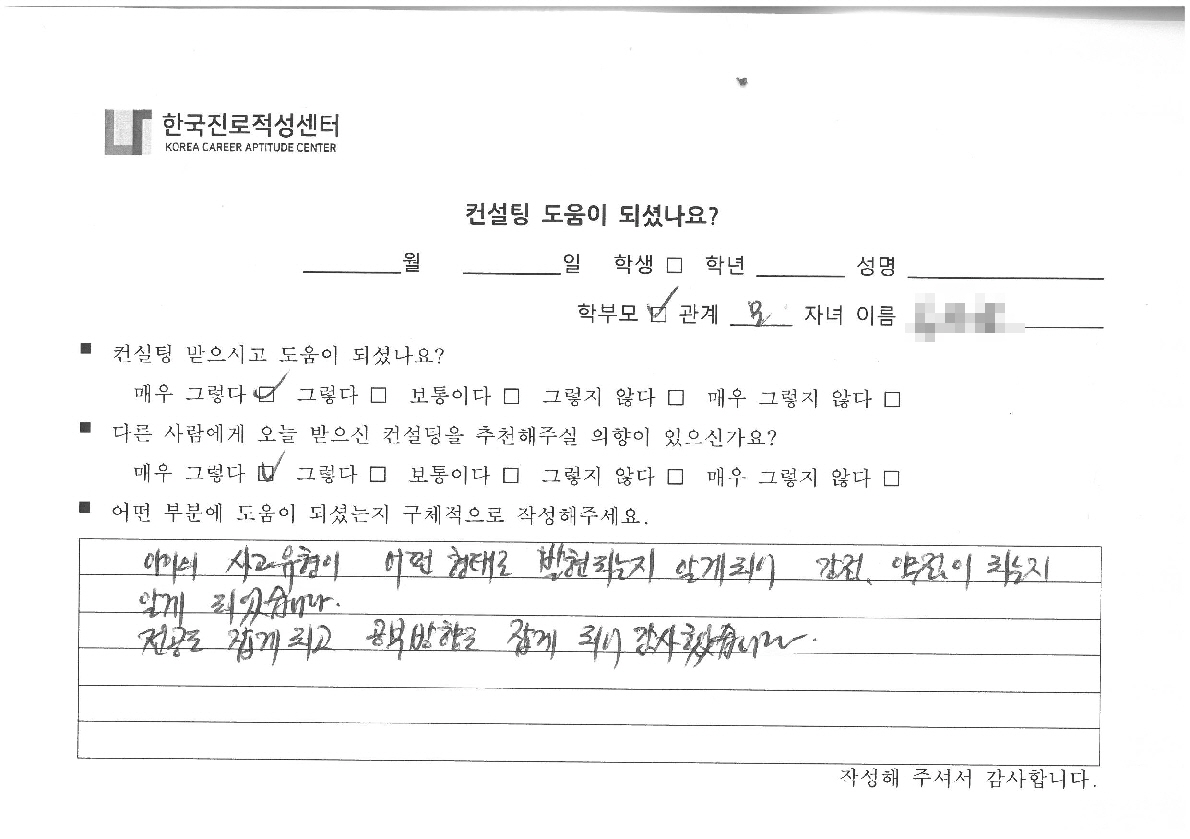 한국진로적성센터
KOREA CAREER APTITUDE CENTER
컨설팅 도움이 되셨나요?
월 일 학생 □ 학년 성명
학부모 ☑ 관계 모 자녀 이름
■ 컨설팅 받으시고 도움이 되셨나요?
매우 그렇다 ☑ 그렇다 □ 보통이다 □ 그렇지 않다 □ 매우 그렇지 않다 □
■ 다른 사람에게 오늘 받으신 컨설팅을 추천해주실 의향이 있으신가요?
매우 그렇다 ☑ 그렇다 □ 보통이다 □ 그렇지 않다 □ 매우 그렇지 않다 □
■ 어떤 부분에 도움이 되셨는지 구체적으로 작성해주세요.
사고유형이 어떤 형태로 발현되는지 알게되어 강점, 약점이 되는지
알게 되었습니다.
전공도 잡게되고 공부방향도 잡게 되어 감사했습니다.
작성해 주셔서 감사합니다.